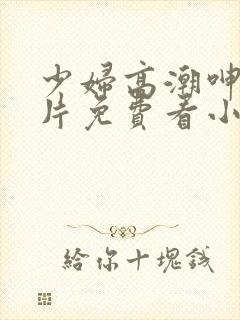 少婦高潮呻
片免費看小
給你十塊錢